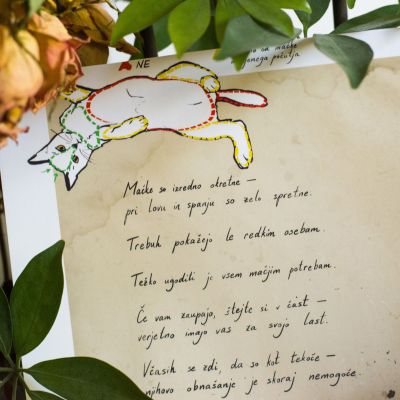 A NE
Mačke so izredno okretne –
pri lovu in spanju so zelo spretne.
Trebuh pokažejo le redkim osebam.
Težko ugoditi je vsem mačjim potrebam.
Če vam zaupajo, štejte si v čast –
verjetno imajo vas za svojo last.
Včasih se zdi, da so kot tekoče –
njihovo obnašanje je skoraj nemogoče.